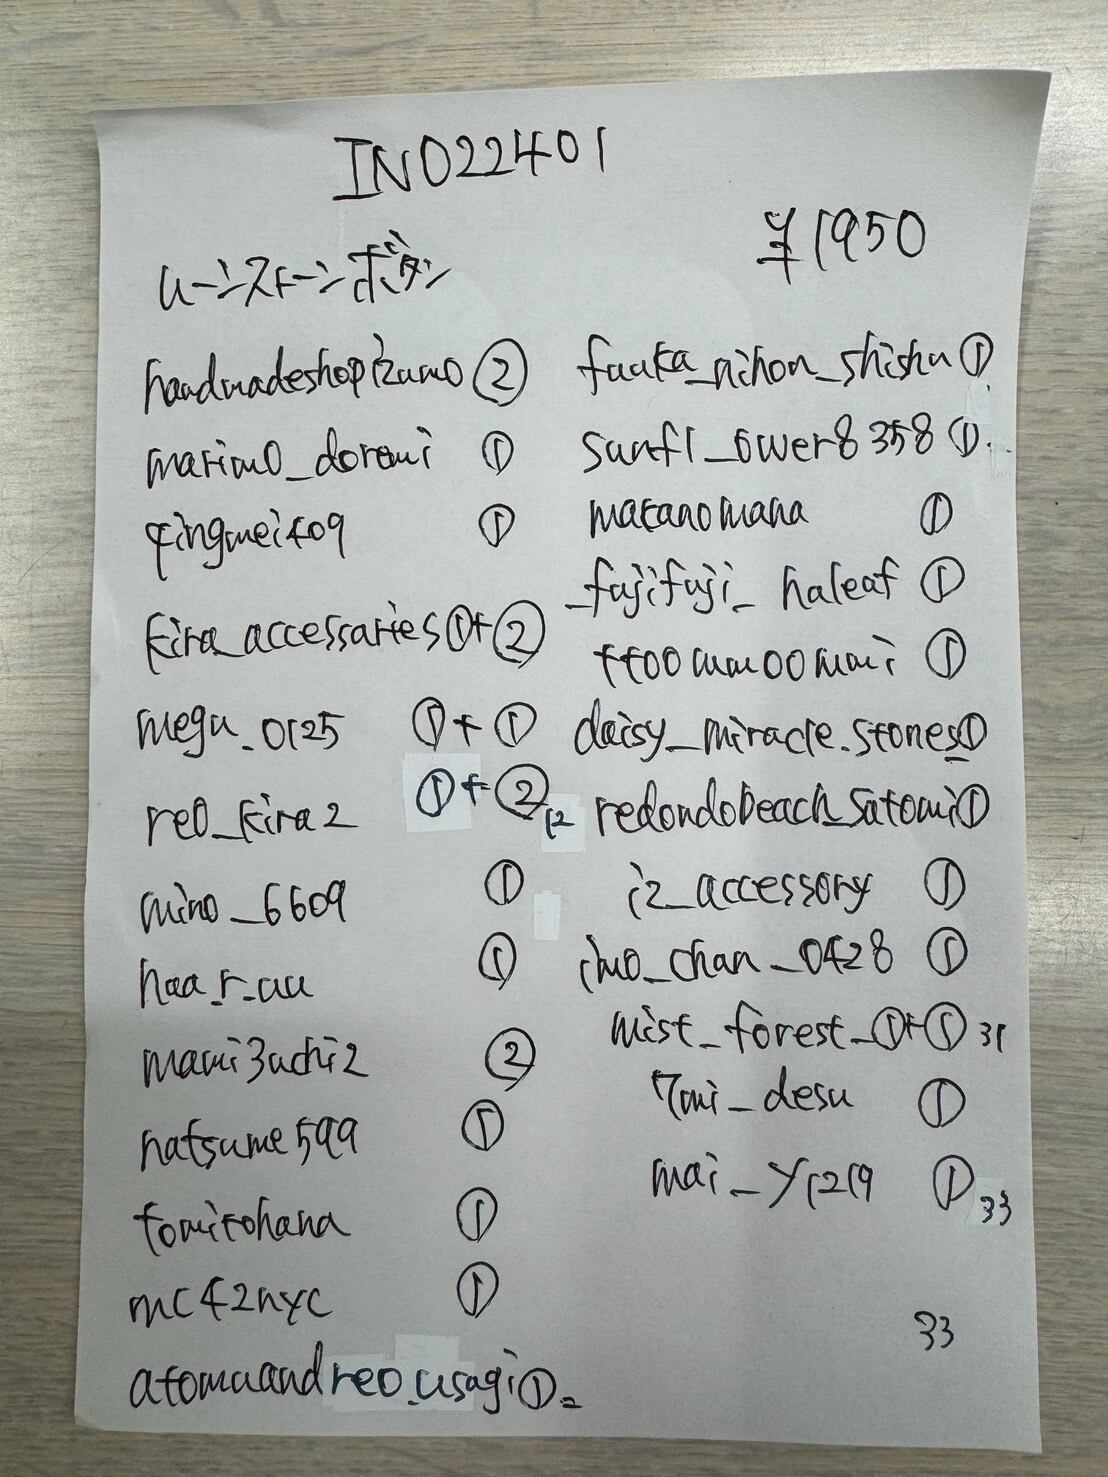 INO22401
¥1950
ムーンストーンボタン
handmadeshopizumo ②
marimo_doremi ①
qingmei409 ①
kira_accessaries ①+②
megu_0125 ①+①
reo_kira2 ①+② 12
mino_6609 ①
haa_r_uu ①
mami3uchi2 ②
natsume599 ①
tomitohana ①
mc42nyc ①
atomuandreo_usagi ①
fuuka_nihon_shishu ①
sunfl_ower8358 ①
makanomana ①
_fujifuji_haleaf ①
tt00mm00mmi ①
daisy_miracle.stones ①
redondobeach_satomi ①
iz_accessory ①
imo_chan_0428 ①
mist_forest_ ①+① 31
7mi_desu ①
mai_y1219 ① 33
33